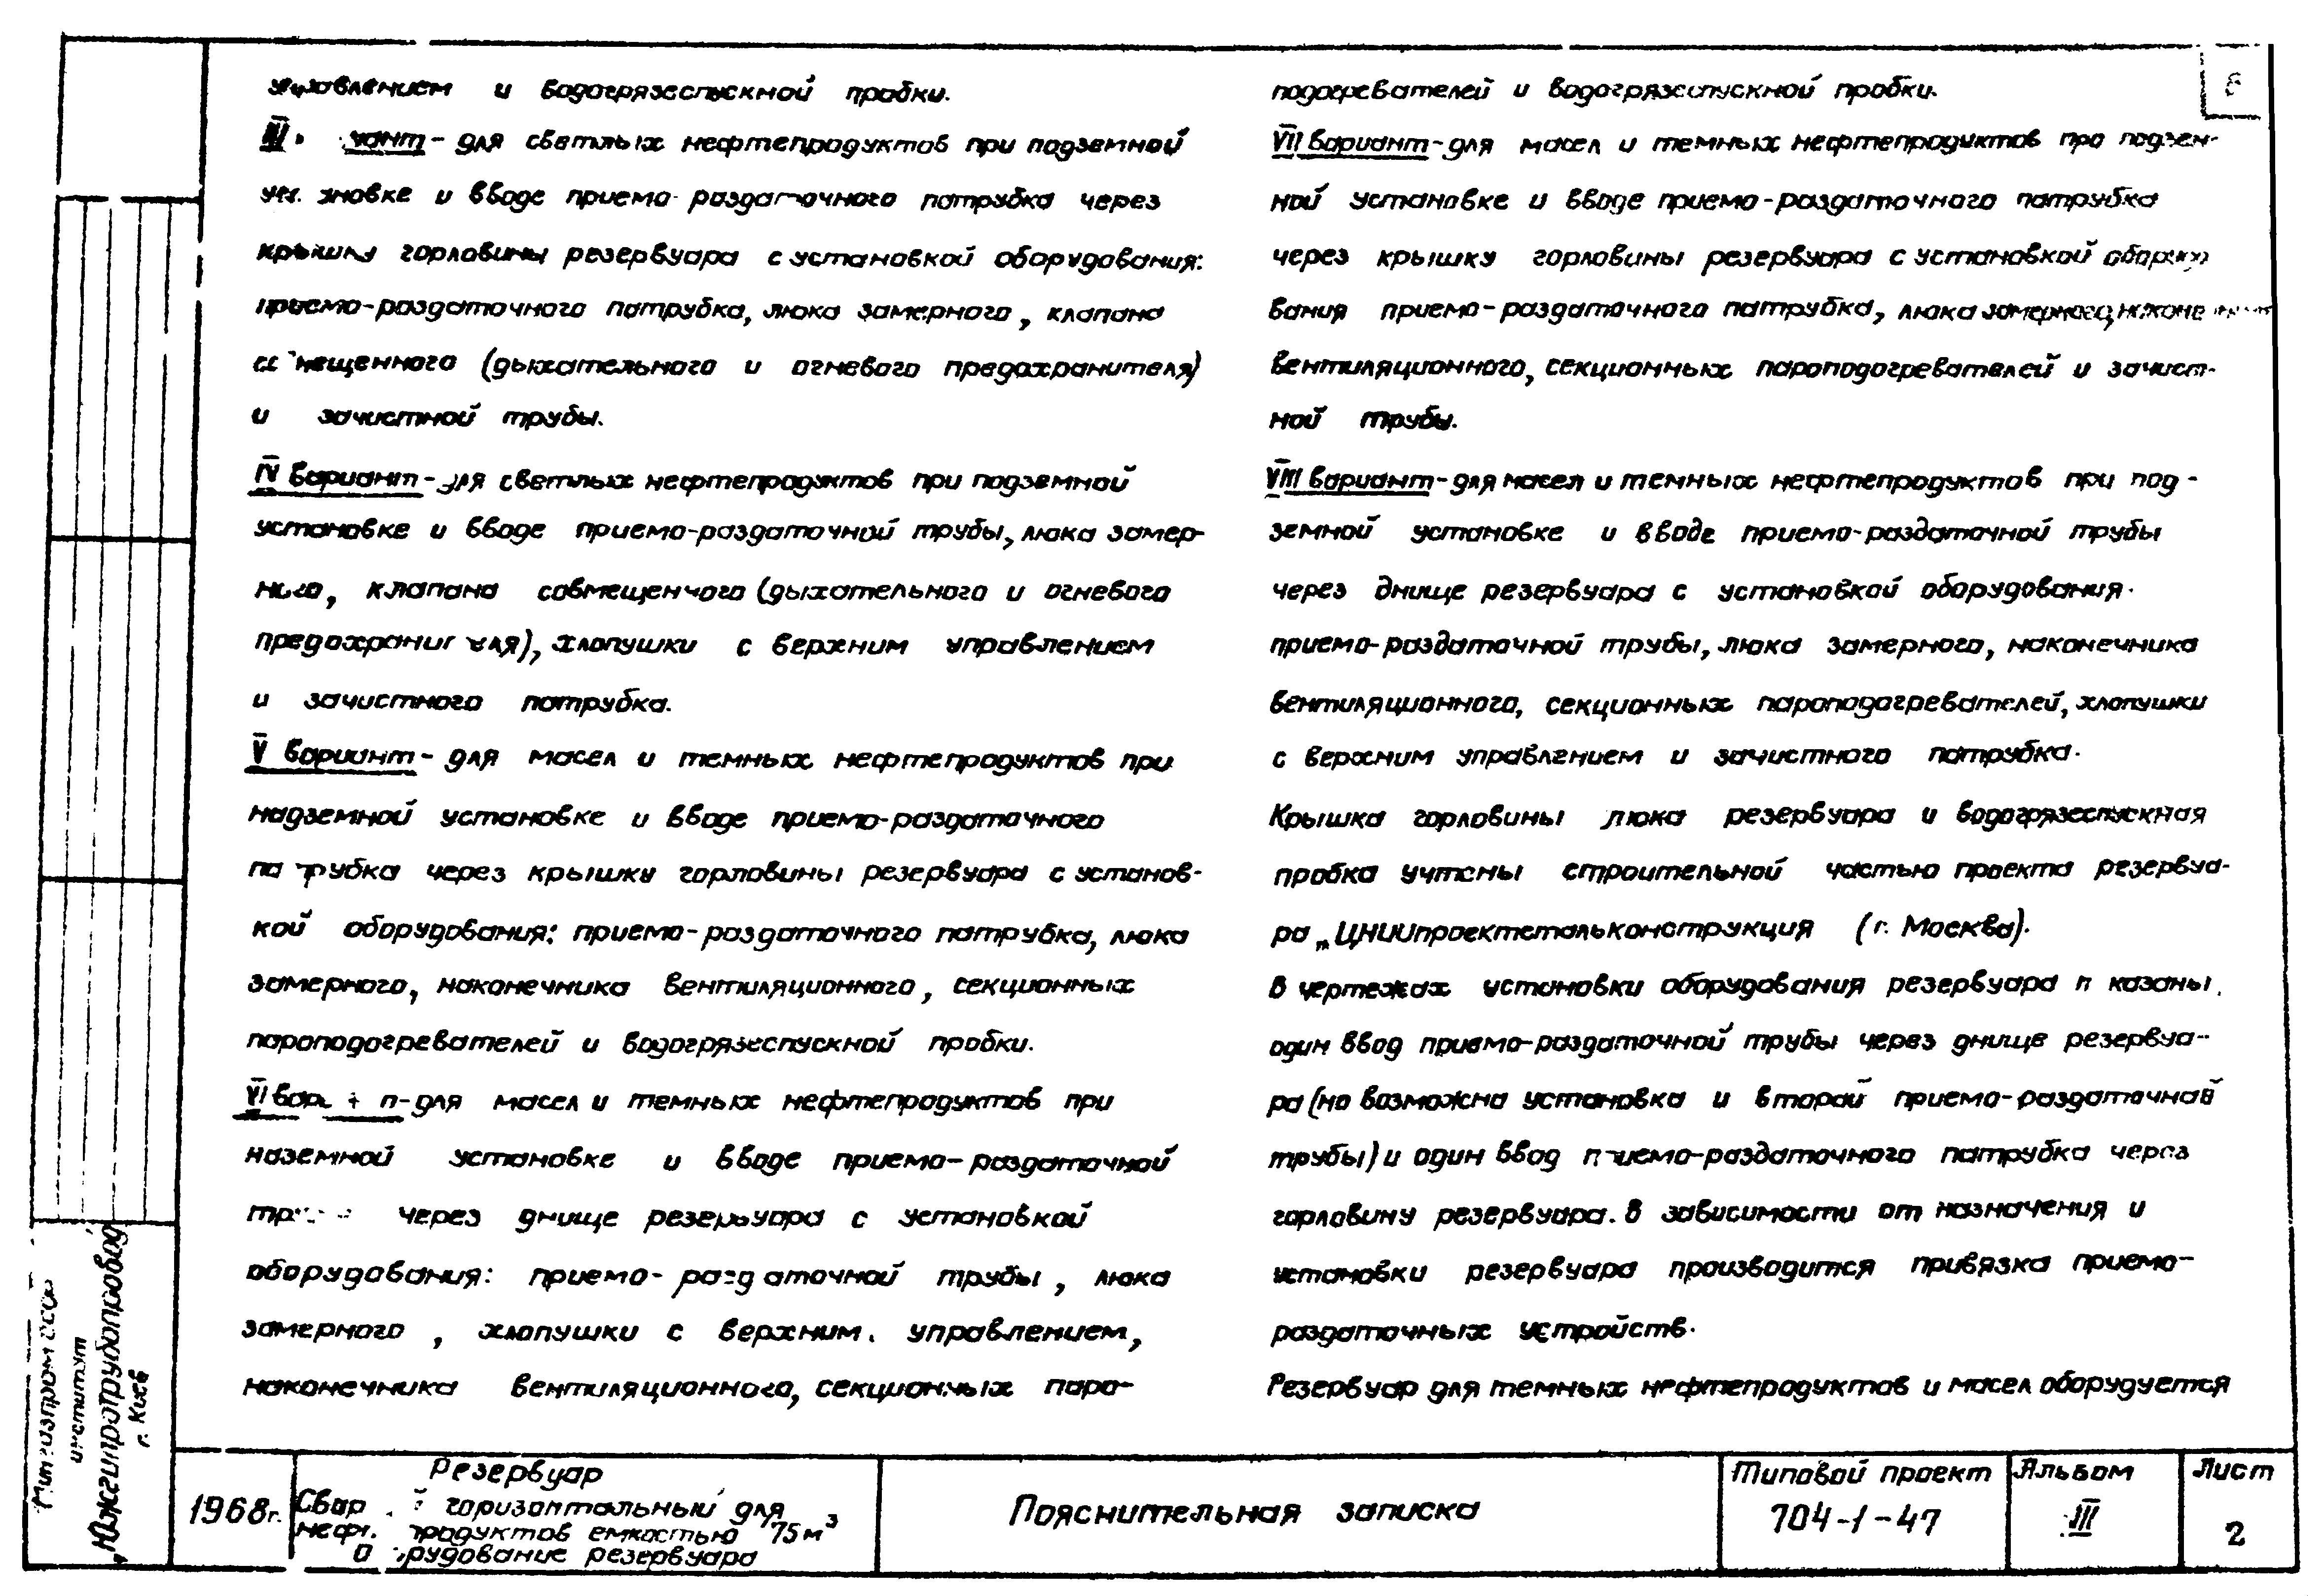 управлением и водогрязеспускной пробки.
III вариант - для светлых нефтепродуктов при подземной
установке и вводе приемо-раздаточного патрубка через
крышку горловины резервуара с установкой оборудования:
приемо-раздаточного патрубка, люка замерного, клапана
совмещенного (дыхательного и огневого предохранителя)
и зачистной трубы.
IV вариант - для светлых нефтепродуктов при подземной
установке и вводе приемо-раздаточной трубы, люка замер-
ного, клапана совмещенного (дыхательного и огневого
предохранителя), хлопушки с верхним управлением
и зачистного патрубка.
V вариант - для масел и темных нефтепродуктов при
надземной установке и вводе приемо-раздаточного
патрубка через крышку горловины резервуара с установ-
кой оборудования: приемо-раздаточного патрубка, люка
замерного, наконечника вентиляционного, секционных
пароподогревателей и водогрязеспускной пробки.
VI вариант - для масел и темных нефтепродуктов при
наземной установке и вводе приемо-раздаточной
трубы через днище резервуара с установкой
оборудования: приемо-раздаточной трубы, люка
замерного, хлопушки с верхним. управлением,
наконечника вентиляционного, секционных паро-
подогревателей и водогрязеспускной пробки.
VII вариант - для масел и темных нефтепродуктов при подзем-
ной установке и вводе приемо-раздаточного патрубка
через крышку горловины резервуара с установкой оборудо-
вания приемо-раздаточного патрубка, люка замерного, наконечника
вентиляционного, секционных пароподогревателей и зачист-
ной трубы.
VIII вариант - для масел и темных нефтепродуктов при под-
земной установке и вводе приемо-раздаточной трубы
через днище резервуара с установкой оборудования.
приемо-раздаточной трубы, люка замерного, наконечника
вентиляционного, секционных пароподогревателей, хлопушки
с верхним управлением и зачистного патрубка.
Крышка горловины люка резервуара и водогрязеспускная
пробка учтены строительной частью проекта резервуа-
ра „ЦНИИпроектстальконструкция (г. Москва).
В чертежах установки оборудования резервуара показаны
один ввод приемо-раздаточной трубы через днище резервуа-
ра (но возможна установка и второй приемо-раздаточной
трубы) и один ввод приемо-раздаточного патрубка через
горловину резервуара. В зависимости от назначения и
установки резервуара производится привязка приемо-
раздаточных устройств.
Резервуар для темных нефтепродуктов и масел оборудуется
6
Мингазпром СССР
институт
„Южгипротрубопровод
г. Киев
1968г.
Резервуар
Сварной горизонтальный для
нефтепродуктов емкостью 75 м³
Оборудование резервуара
Пояснительная записка
Типовой проект
704-1-47
Альбом
III
Лист
2